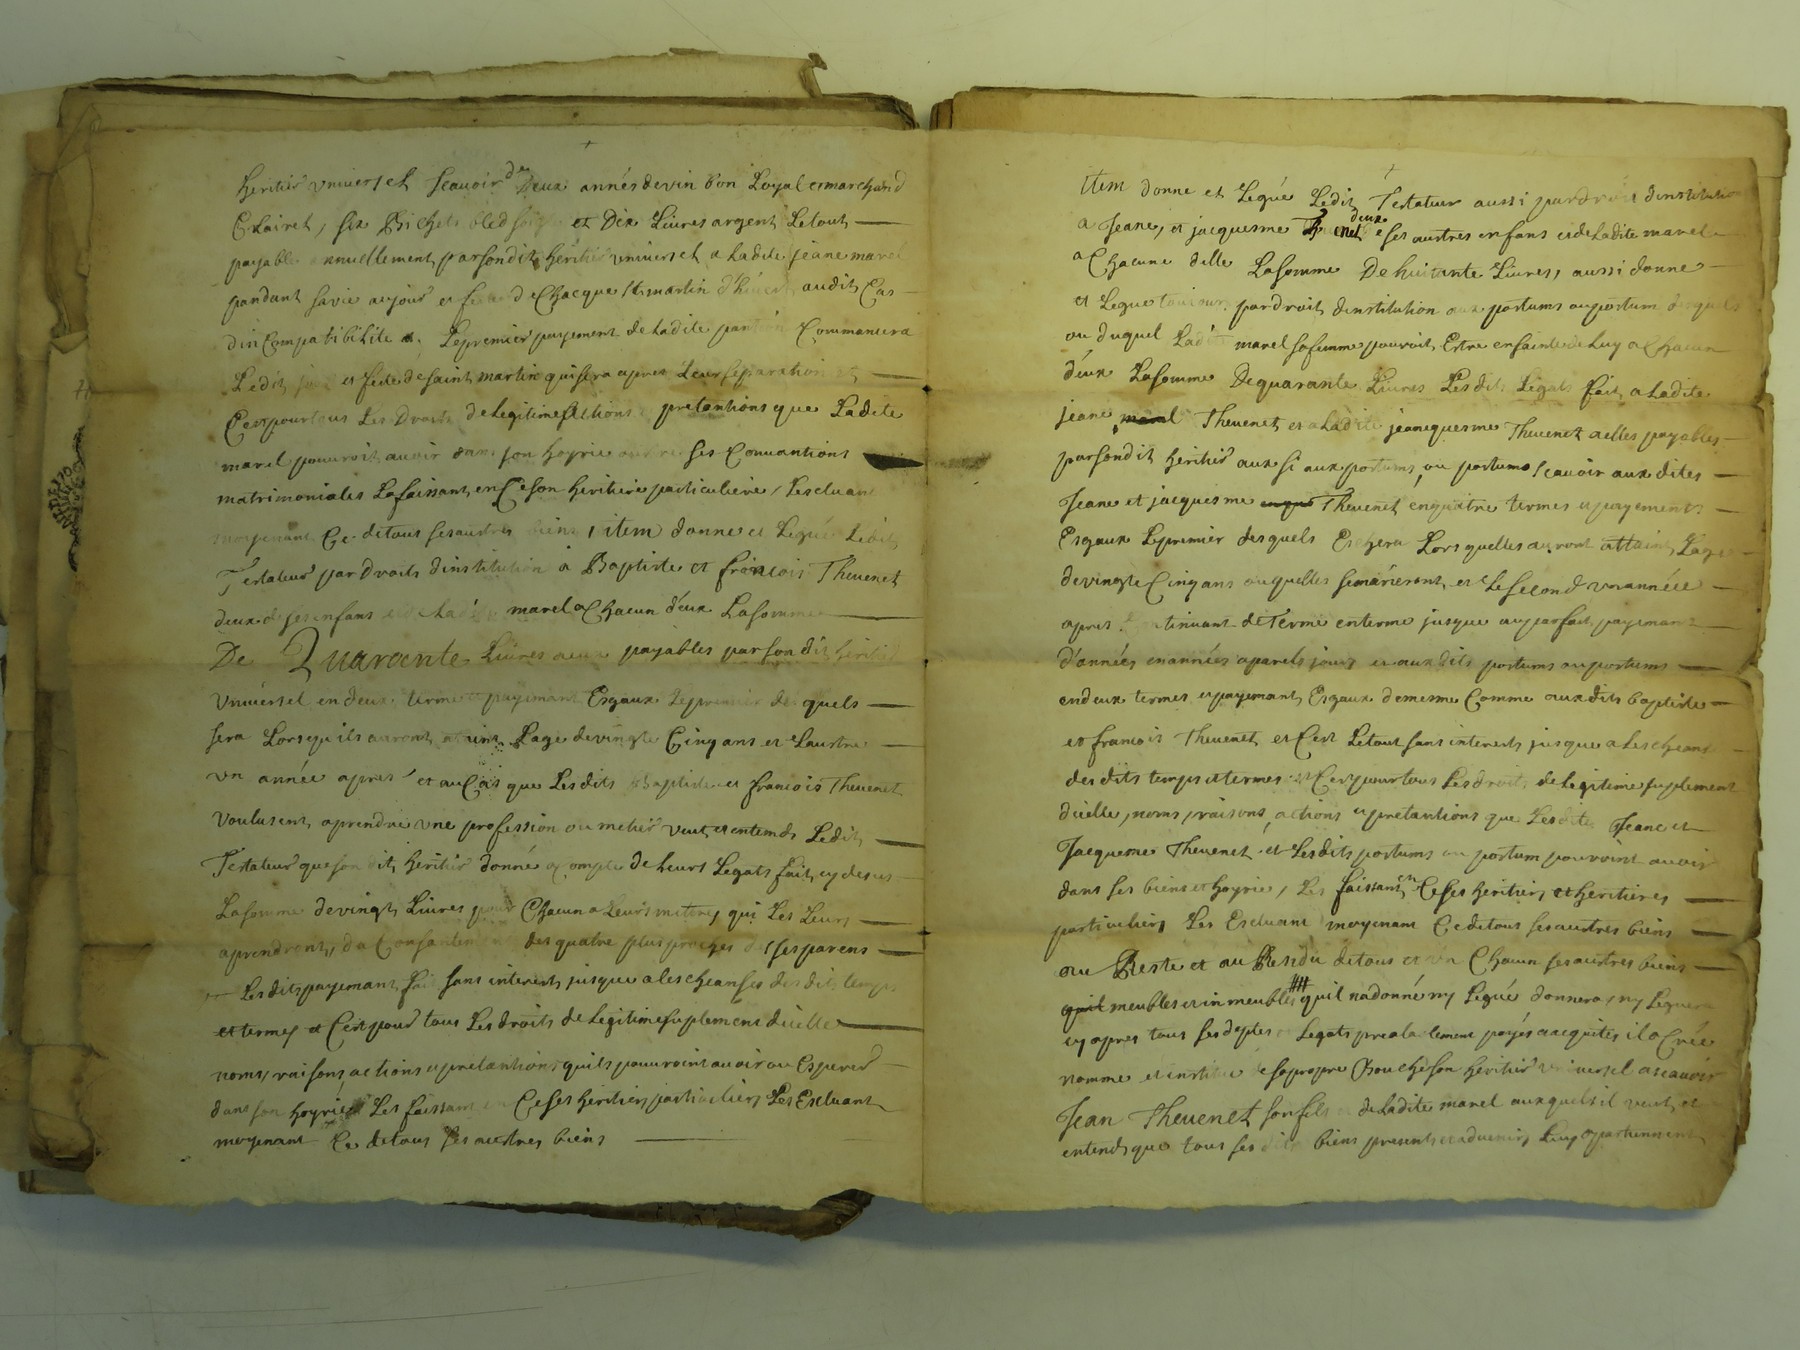 heritier universel scavoir de Deux années de vin bon Loyal et marchand
Clairet, six Bichets bled et Dix Livres argent Le tout
payable annuellement par son dit héritier universel a La dite jeane marel
pandant sa vie au jour et feste de Chacque st martin d'hiver audit Cas
din Compatibilite Le premier payement de La dite pantion Commancera
Ledit jour et feste de saint martin qui sera apres Leur separation et
C'est pour tous Les Droits de Legitime actions pretantions que La dite
marel pouvroit avoir dans son hoyrie ses Convantions
matrimoniales La faissant en Ce son heritiere particuliere, L'escluant
moyenant Ce de tous ses austres biens, item donne et Legue Ledit
Testateur par droits dinstitution à Baptiste et françois Thevenet
deux de ses enfans et de Ladite marel a Chacun d'eux La somme
De Quarante Livres a eux payables par son dit héritier
Universel en deux terme et payemant Esgaux Le premier des quels
sera Lors qu'ils auront attint Lage de vingte Cinq ans et Laustre
un année apres et au Cas que Les dits Baptiste et francois Thevenet
Voulusent aprendre une profession ou metier veut et entemds Ledit
Testateur que son dit héritier donné a compte de Leurs Legats fait cy desus
La somme de vingt Livres pour Chacun a Leurs mitres qui Les Leurs
aprendront, du Consantement des quatre plus proches de ses parens
Les dits payemant fait sans interests jusque a les cheanses des dits temps
et termes et C'est pour tous Les droits de Legitime suplemens dicelle
noms, raisons actions et pretantions quils pouvroint avoir ou Esperer
dans son hoyrié Les faissant en Ce ses heritiers particuliers Les Excluant
moyenant Ce de tous ses austres biens
item donne et Legué Ledit Testateur aussi par droits dinstitution
a Jeane, et jacquesme Thevenet deux e ses austres enfans et de Ladite marel
a Chacune d'elle La somme De huitante Livres, aussi donne
et Legue toujours par droit dinstitution aux postums ou postum desquels
ou duquel Ladite marel sa femme pouroit Estre ensainte de Luy a Chacun
d'eux La somme De quarante Livres Les dits Legats fait a Ladite
jeane marel Thevenet et a Ladite jeacquesme Thevenet a elles payables
par son dit héritier aux si aux postums, ou postums scavoir aux dites
Jeane et jacquesme Thevenet en quatre termes et payements
Esgaux Le premier desquels Eschera Lors quelles auront attaint Lage
de vingte Cinq ans ou quelles se marieront, et Le second un année
apres Continuant de Terme en terme jusque au parfait payemant
d'années en années a parels jours et aux dits postums ou postums
en deux termes et payemant Esgaux de mesme Comme aux dits baptiste
et francois Thevenet et C'est Le tout sans interests jusque a Les cheant
des dits temps et termes et C'est pour tous Les droits de Legitime suplement
d'icelle, noms, raisons, actions et pretantions que Les dite Jeane et
Jacqueme Thevenet et Les dits postums ou postum pouvroint avoir
dans ses biens et hoyrie, Les faissant en Ce ses heritiers et heritieres
particuliers Les Escluant moyenant Ce de tous ses austres biens
au Reste et au Residu de tous et un Chacun ses austres biens
quil meubles et inmeubles quil na donné ny Legué donnera ny Leguera
cy apres tous ses deptes et Legats prealablement payés et acquites il a Crée
nomme et institue de sa propre Bouche son héritier universel a scavoir
Jean Thevenet son fils et de Ladite marel auxquels il veut et
entends que tous ses dits biens presents et advenirs Luy apartiennent